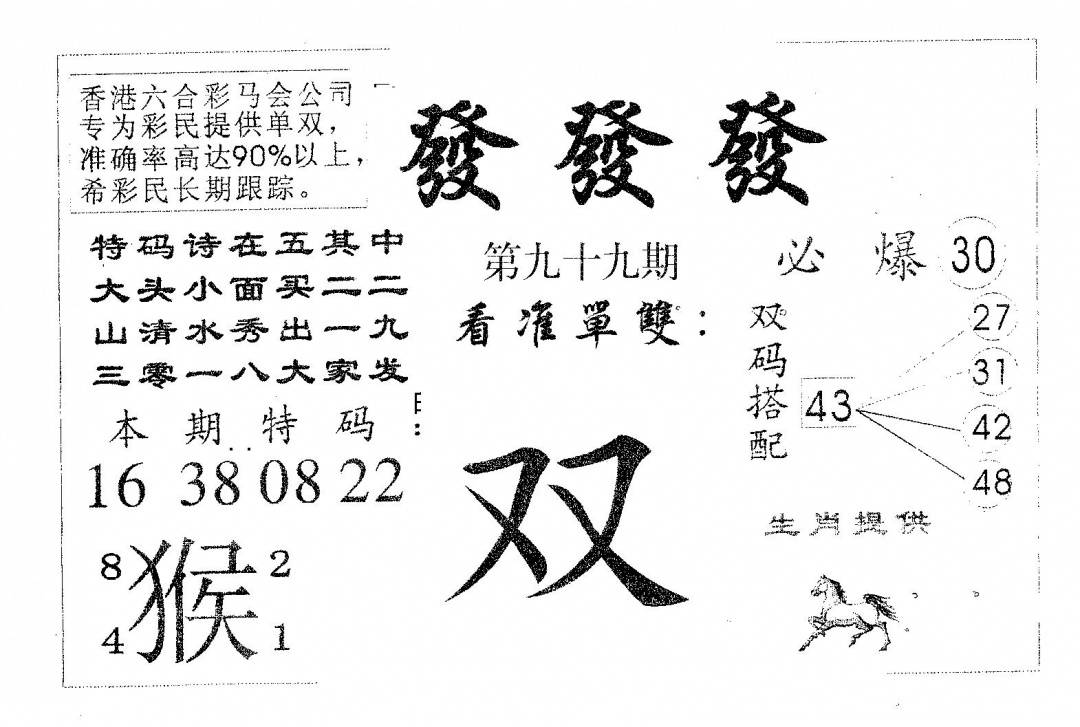 香港六合彩马会公司
专为彩民提供单双，
准确率高达90%以上，
希彩民长期跟踪。
發發發
特码诗在五其中
大头小面买二二
山清水秀出一九
三零一八大家发
第九十九期
看准單雙：
必爆 30
双码搭配
43
27
31
42
48
本期特码：
16 38 08 22
双
生肖提供
8 猴 2
4 1